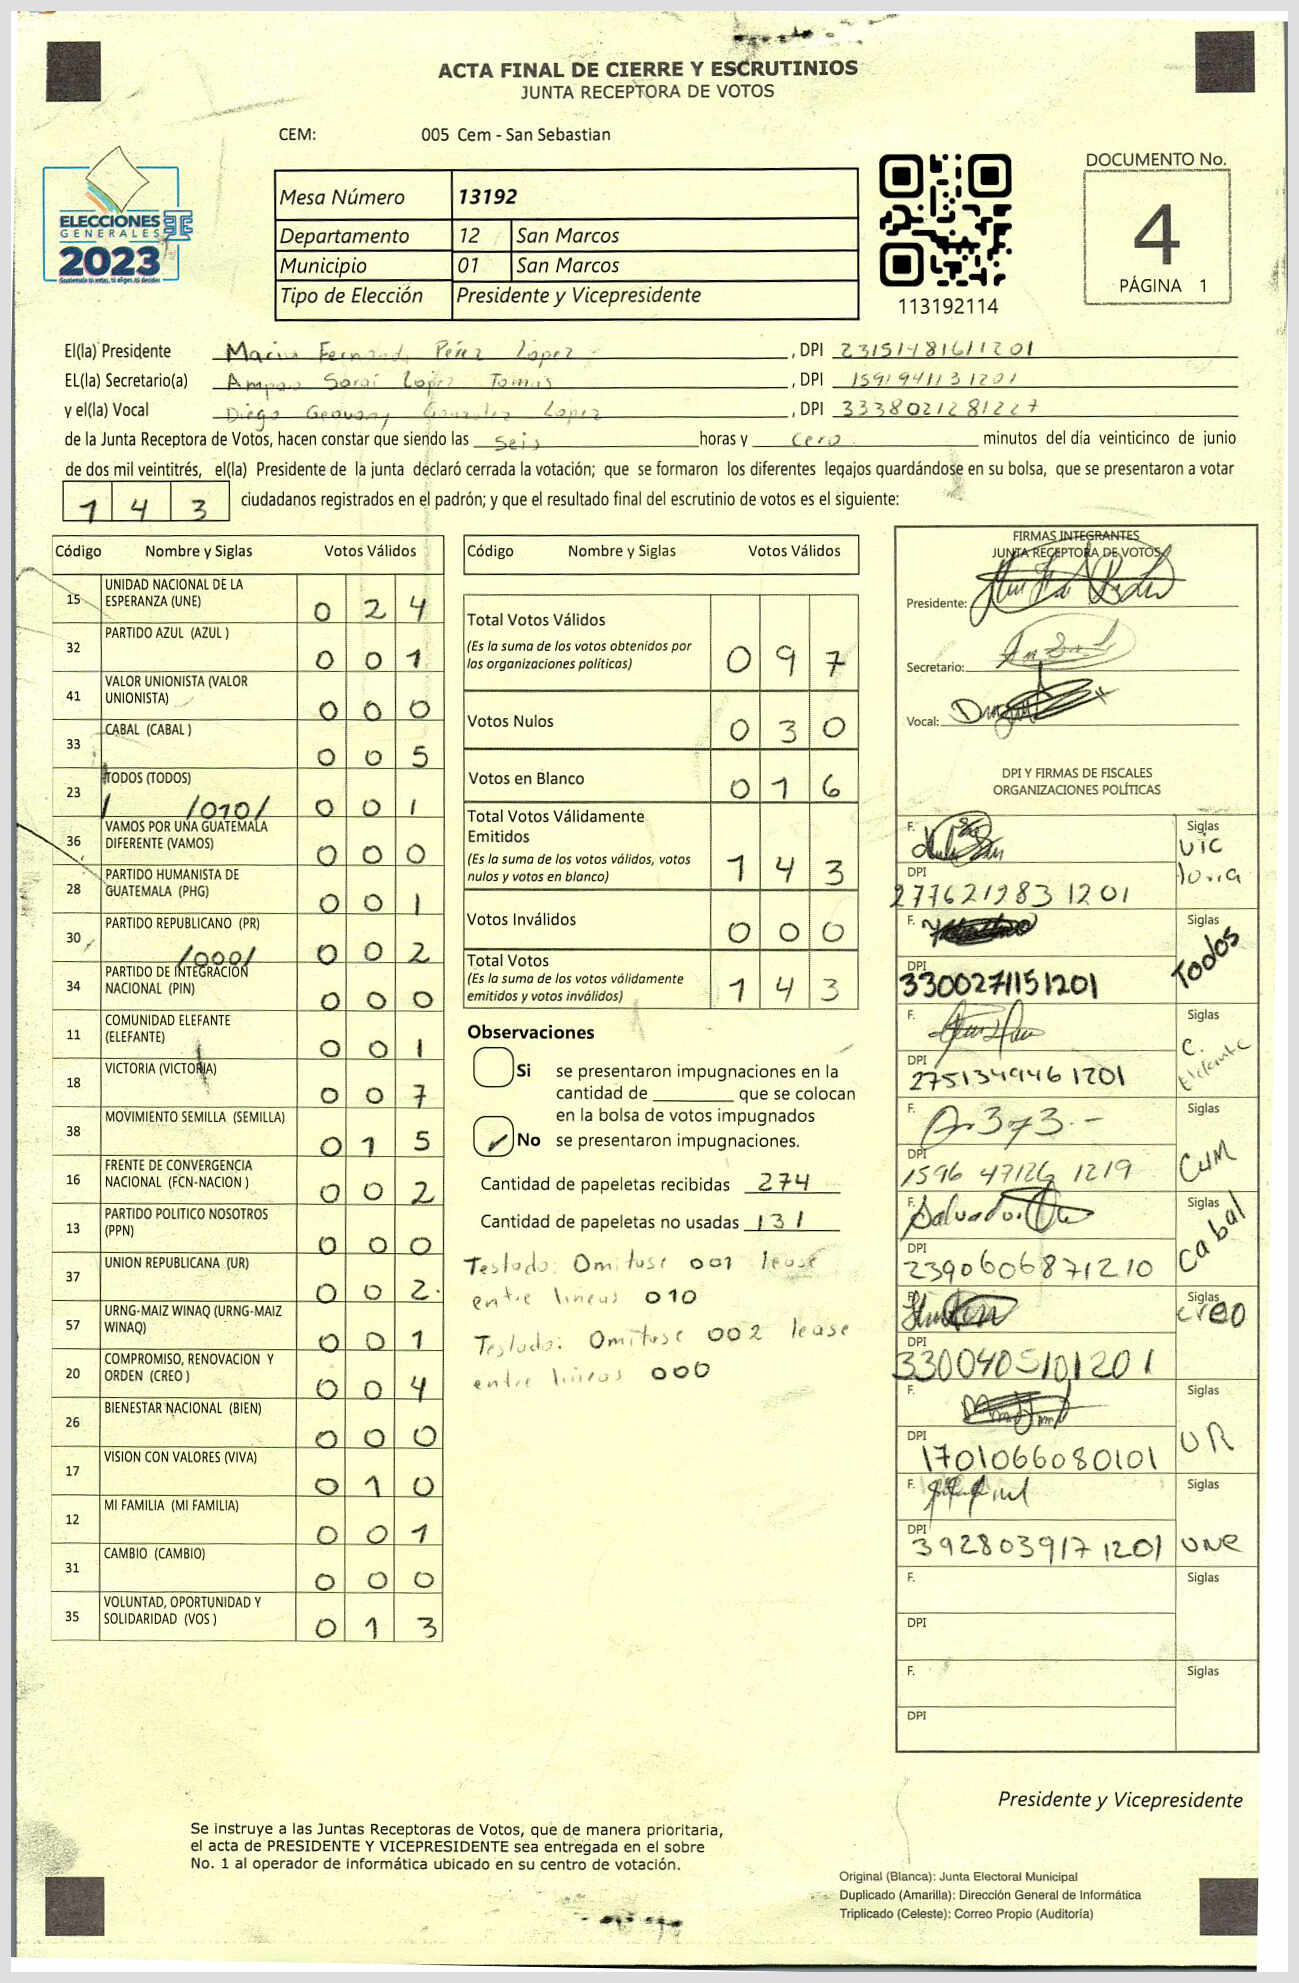 ACTA FINAL DE CIERRE Y ESCRUTINIOS
JUNTA RECEPTORA DE VOTOS
CEM: 005 Cem - San Sebastian
ELECCIONES
GENERALES
2023
Mesa Número 13192
Departamento 12 San Marcos
Municipio 01 San Marcos
Tipo de Elección Presidente y Vicepresidente
113192114
DOCUMENTO No.
4
PÁGINA 1
El(la) Presidente Pérez Lopez , DPI
EL(la) Secretario(a) Amparo Saraí López Tomás , DPI 1591941131201
y el(la) Vocal Diego Geovany Gonzalez Lopez , DPI 3338021281227
de la Junta Receptora de Votos, hacen constar que siendo las Seis horas y cero minutos del día veinticinco de junio
de dos mil veintitrés, el(la) Presidente de la junta declaró cerrada la votación; que se formaron los diferentes legajos guardándose en su bolsa, que se presentaron a votar
143 ciudadanos registrados en el padrón; y que el resultado final del escrutinio de votos es el siguiente:
Código Nombre y Siglas Votos Válidos
15 UNIDAD NACIONAL DE LA ESPERANZA (UNE) 024
32 PARTIDO AZUL (AZUL ) 001
41 VALOR UNIONISTA (VALOR UNIONISTA) 000
33 CABAL (CABAL ) 005
23 TODOS (TODOS) /010/ 001
36 VAMOS POR UNA GUATEMALA DIFERENTE (VAMOS) 000
28 PARTIDO HUMANISTA DE GUATEMALA (PHG) 001
30 PARTIDO REPUBLICANO (PR) /000/ 002
34 PARTIDO DE INTEGRACION NACIONAL (PIN) 000
11 COMUNIDAD ELEFANTE (ELEFANTE) 001
18 VICTORIA (VICTORIA) 007
38 MOVIMIENTO SEMILLA (SEMILLA) 015
16 FRENTE DE CONVERGENCIA NACIONAL (FCN-NACION ) 002
13 PARTIDO POLITICO NOSOTROS (PPN) 000
37 UNION REPUBLICANA (UR) 002
57 URNG-MAIZ WINAQ (URNG-MAIZ WINAQ) 001
20 COMPROMISO, RENOVACION Y ORDEN (CREO ) 004
26 BIENESTAR NACIONAL (BIEN) 000
17 VISION CON VALORES (VIVA) 010
12 MI FAMILIA (MI FAMILIA) 001
31 CAMBIO (CAMBIO) 000
35 VOLUNTAD, OPORTUNIDAD Y SOLIDARIDAD (VOS ) 013
Código Nombre y Siglas Votos Válidos
Total Votos Válidos 097
(Es la suma de los votos obtenidos por
las organizaciones políticas)
Votos Nulos 030
Votos en Blanco 016
Total Votos Válidamente
Emitidos 143
(Es la suma de los votos válidos, votos
nulos y votos en blanco)
Votos Inválidos 000
Total Votos 143
(Es la suma de los votos válidamente
emitidos y votos inválidos)
Observaciones
Si se presentaron impugnaciones en la
cantidad de ________ que se colocan
en la bolsa de votos impugnados
No se presentaron impugnaciones.
Cantidad de papeletas recibidas 274
Cantidad de papeletas no usadas 131
Testado: Omitase 001 lease
entre lineas 010
Testado: Omitase 002 lease
entre lineas 000
FIRMAS INTEGRANTES
JUNTA RECEPTORA DE VOTOS
Presidente:
Secretario:
Vocal:
DPI Y FIRMAS DE FISCALES
ORGANIZACIONES POLÍTICAS
F. Siglas Victoria
DPI 2776212831201
F. Siglas Todos
DPI 3300271151201
F. Siglas C. Elefante
DPI 2751349461201
F. Siglas
DPI 1596 47126 1219
F. Siglas Cabal
DPI 2390606871210
F. Siglas creo
DPI 3300405101201
F. Siglas UR
DPI 1701066080101
F. Siglas UNE
DPI 3928039171201
F. Siglas
DPI
F. Siglas
DPI
Presidente y Vicepresidente
Se instruye a las Juntas Receptoras de Votos, que de manera prioritaria,
el acta de PRESIDENTE Y VICEPRESIDENTE sea entregada en el sobre
No. 1 al operador de informática ubicado en su centro de votación.
Original (Blanca): Junta Electoral Municipal
Duplicado (Amarilla): Dirección General de Informática
Triplicado (Celeste): Correo Propio (Auditoría)